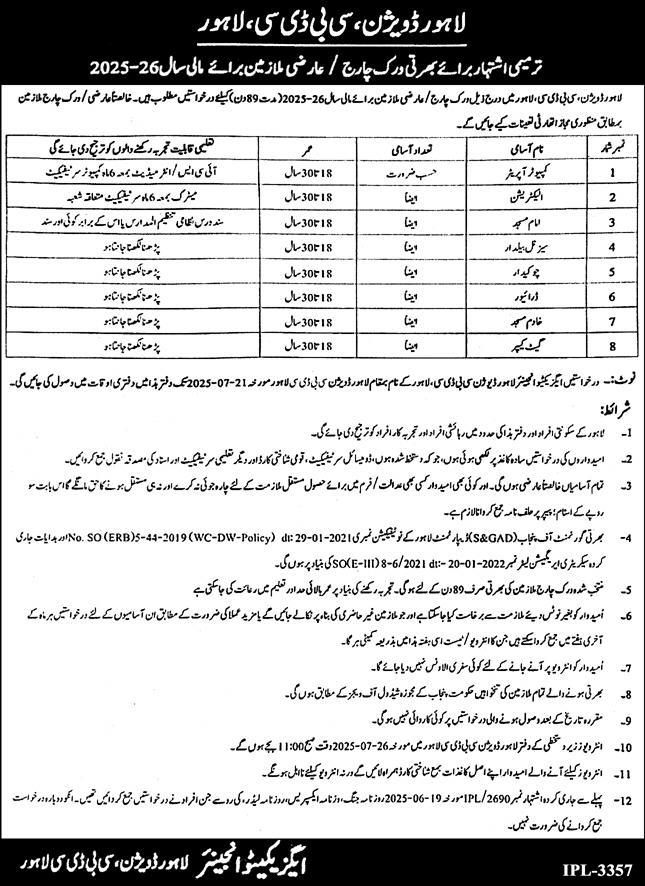 لاہور ڈویژن، سی بی ڈی سی، لاہور
ترمیمی اشتہار برائے بھرتی ورک چارج / عارضی ملازمین برائے مالی سال 26-2025
لاہور ڈویژن، سی بی ڈی سی، لاہور میں درج ذیل ورک چارج / عارضی ملازمین برائے مالی سال 26-2025 (مدت 89 دن) کیلئے درخواستیں مطلوب ہیں۔ خالصتاً عارضی / ورک چارج ملازمین
بمطابق منظوری مجاز اتھارٹی تعینات کیے جائیں گے۔
نمبر شمار نام آسامی تعداد آسامی عمر تعلیمی قابلیت تجربہ رکھنے والوں کو ترجیح دی جائے گی
1 کمپیوٹر آپریٹر حسب ضرورت 18 تا 30 سال آئی سی ایس / انٹرمیڈیٹ بمعہ 6 ماہ کمپیوٹر سرٹیفکیٹ
2 الیکٹریشن ایضاً 18 تا 30 سال میٹرک بمعہ 6 ماہ سرٹیفکیٹ متعلقہ شعبہ
3 امام مسجد ایضاً 18 تا 30 سال سند درس نظامی تنظیم المدارس یا اس کے برابر کوئی اور سند
4 سیزنل بیلدار ایضاً 18 تا 30 سال پڑھنا لکھنا جانتا ہو
5 چوکیدار ایضاً 18 تا 30 سال پڑھنا لکھنا جانتا ہو
6 ڈرائیور ایضاً 18 تا 30 سال پڑھنا لکھنا جانتا ہو
7 خادم مسجد ایضاً 18 تا 30 سال پڑھنا لکھنا جانتا ہو
8 گیٹ کیپر ایضاً 18 تا 30 سال پڑھنا لکھنا جانتا ہو
نوٹ:۔ درخواستیں ایگزیکٹیو انجینئر لاہور ڈویژن سی بی ڈی سی، لاہور کے نام بمقام لاہور ڈویژن سی بی ڈی سی لاہور مورخہ 21-07-2025 تک دفتر ہذا میں دفتری اوقات میں وصول کی جائیں گی۔
شرائط:
1۔ لاہور کے سکونتی افراد اور دفتر ہذا کی حدود میں رہائشی افراد اور تجربہ کار افراد کو ترجیح دی جائے گی۔
2۔ امیدواروں کی درخواستیں سادہ کاغذ پر لکھی ہوئی ہوں، جو کہ دستخط شدہ ہوں، ڈومیسائل سرٹیفکیٹ، قومی شناختی کارڈ اور دیگر تعلیمی سرٹیفکیٹ اور اسناد کی مصدقہ نقول جمع کروائیں۔
3۔ تمام آسامیاں خالصتاً عارضی ہوں گی۔ اور کوئی بھی امیدوار کسی بھی عدالت / فرم میں برائے حصول مستقل ملازمت کے لئے چارہ جوئی نہ کرے اور نہ ہی مستقل ہونے کا حق مانگے گا اس بابت سو
روپے کے اسٹام پیپر پر حلف نامہ جمع کروانا لازم ہے۔
4۔ بھرتی گورنمنٹ آف پنجاب (S&GAD) ڈیپارٹمنٹ لاہور کے نوٹیفکیشن نمبری No. SO (ERB)5-44-2019 (WC-DW-Policy) dt: 29-01-2021 اور ہدایات جاری
کردہ سیکرٹری ایریگیشن لیٹر نمبر SO(E-III) 8-6/2021 dt:- 20-01-2022 کی بنیاد پر ہوں گی۔
5۔ منتخب شدہ ورک چارج ملازمین کی بھرتی صرف 89 دن کے لئے ہو گی۔ تجربہ رکھنے کی بنیاد پر عمر بالائی حد اور تعلیم میں رعائت کی جاسکتی ہے
6۔ اُمیدوار کو بغیر نوٹس دیئے ملازمت سے برخاست کیا جاسکتا ہے اور جو ملازمین غیر حاضری کی بناء پر نکالے جائیں گے یا مزید عملا کی ضرورت کے مطابق ان آسامیوں کے لئے درخواستیں ہر ماہ کے
آخری ہفتے میں جمع کروا سکتے ہیں جن کا انٹرویو / ٹیسٹ اسی ہفتہ ہذا میں بذریعہ کمیٹی ہر گا۔
7۔ اُمیدوار کو انٹرویو پر آنے جانے کے لئے کوئی سفری الاونس نہیں دیا جائے گا۔
8۔ بھرتی ہونے والے تمام ملازمین کی تنخواہیں حکومت پنجاب کے مجوزہ شیڈول آف ویجز کے مطابق ہوں گی۔
9۔ مقررہ تاریخ کے بعد وصول ہونے والی درخواستیں پر کوئی کاروائی نہیں ہو گی۔
10۔ انٹرویو زیر دستخطی کے دفتر لاہور ڈویژن سی بی ڈی سی لاہور میں مورخہ 26-07-2025 وقت صبح 11:00 بجے ہوں گے۔
11۔ انٹرویو کیلئے آنے والے امیدوار اپنے اصل کاغذات بمع شناختی کارڈ ہمراہ لائیں گے ورنہ انٹرویو کیلئے نااہل ہونگے۔
12۔ پہلے سے جاری کردہ اشتہار نمبر IPL/2690 مورخہ 19-06-2025 روزنامہ جنگ، روزنامہ ایکسپریس، روزنامہ لیڈر، کی رو سے جن افراد نے درخواستیں جمع کروائیں تھیں۔ انکو دوبارہ درخواست
جمع کروانے کی ضرورت نہیں۔
ایگزیکٹیو انجینئر لاہور ڈویژن، سی بی ڈی سی لاہور
IPL-3357